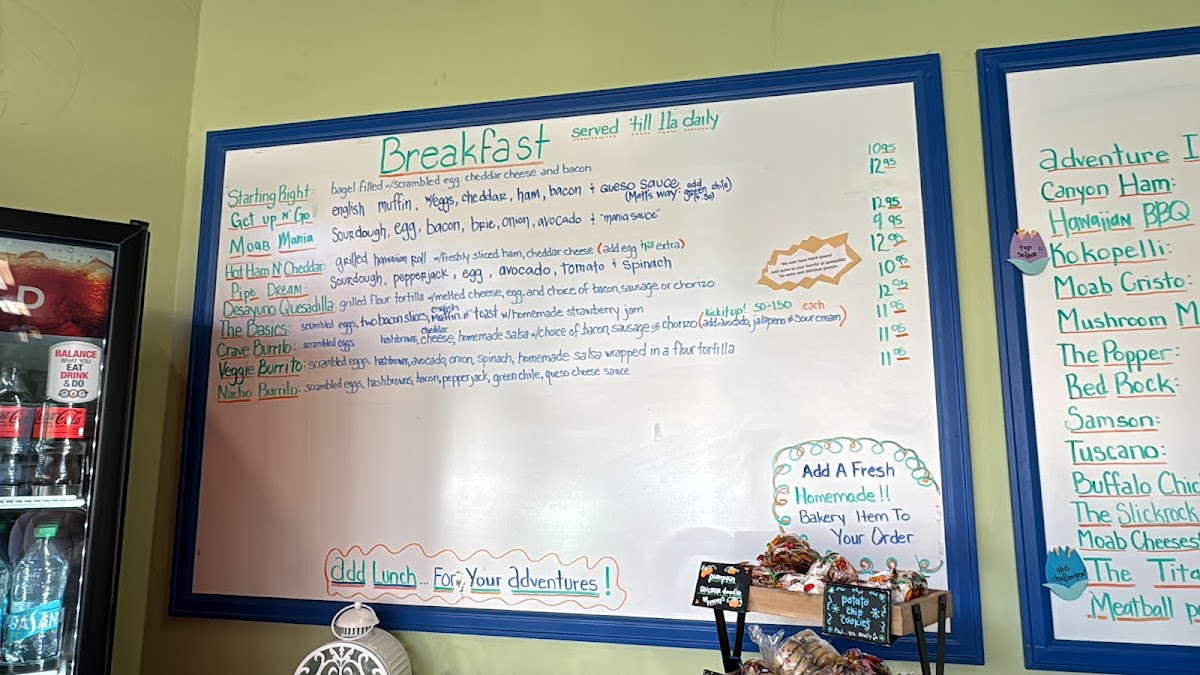 Breakfast served 'till 11a daily
Starting Right: bagel filled w/scrambled egg, cheddar cheese and bacon 10.95
Get up N' Go english muffin, w/eggs, cheddar, ham, bacon & queso sauce 12.95
(Matt's way: add green chile)
Moab Mania Sourdough, egg, bacon, brie, onion, avocado & "mania sauce" 12.95
Hot Ham N' Cheddar: grilled hawaiian roll w/freshly sliced ham, cheddar cheese (add egg extra) 9.95
Pipe Dream: Sourdough, pepperjack, egg, avocado, tomato & spinach 12.95
Desayuno Quesadilla grilled flour tortilla w/melted cheese, egg, and choice of bacon, sausage or chorizo 10.95
The Basics: scrambled eggs, two bacon slices, english muffin or toast w/homemade strawberry jam 12.95
Kick it up! .50-1.50 each
Crave Burrito: scrambled eggs hashbrowns, cheddar cheese, homemade salsa w/choice of bacon, sausage or chorizo (add avocado, jalapeño or sour cream) 11.95
Veggie Burrito: scrambled eggs, hashbrowns, avocado, onion, spinach, homemade salsa wrapped in a flour tortilla 11.95
Nacho Burrito: scrambled eggs, hashbrowns, bacon, pepperjack, green chile, queso cheese sauce 11.95
We now have black beans!
Add some to your burrito or quesadilla
for extra and delicious protein.
Add A Fresh
Homemade!!
Bakery Item To
Your Order
add Lunch... For Your adventures!
adventure I
Canyon Ham:
Hawaiian BBQ
Kokopelli:
Moab Cristo:
Mushroom M
The Popper:
Red Rock:
Samson:
Tuscano:
Buffalo Chic
The Slickrock
Moab Cheeses
The Tita
Meatball p
top seller!
the challenge!
BALANCE
WHAT YOU
EAT
DRINK
& DO
Coca-Cola
DASANI
pumpkin
snickerdoodle
potato
chip
cookies